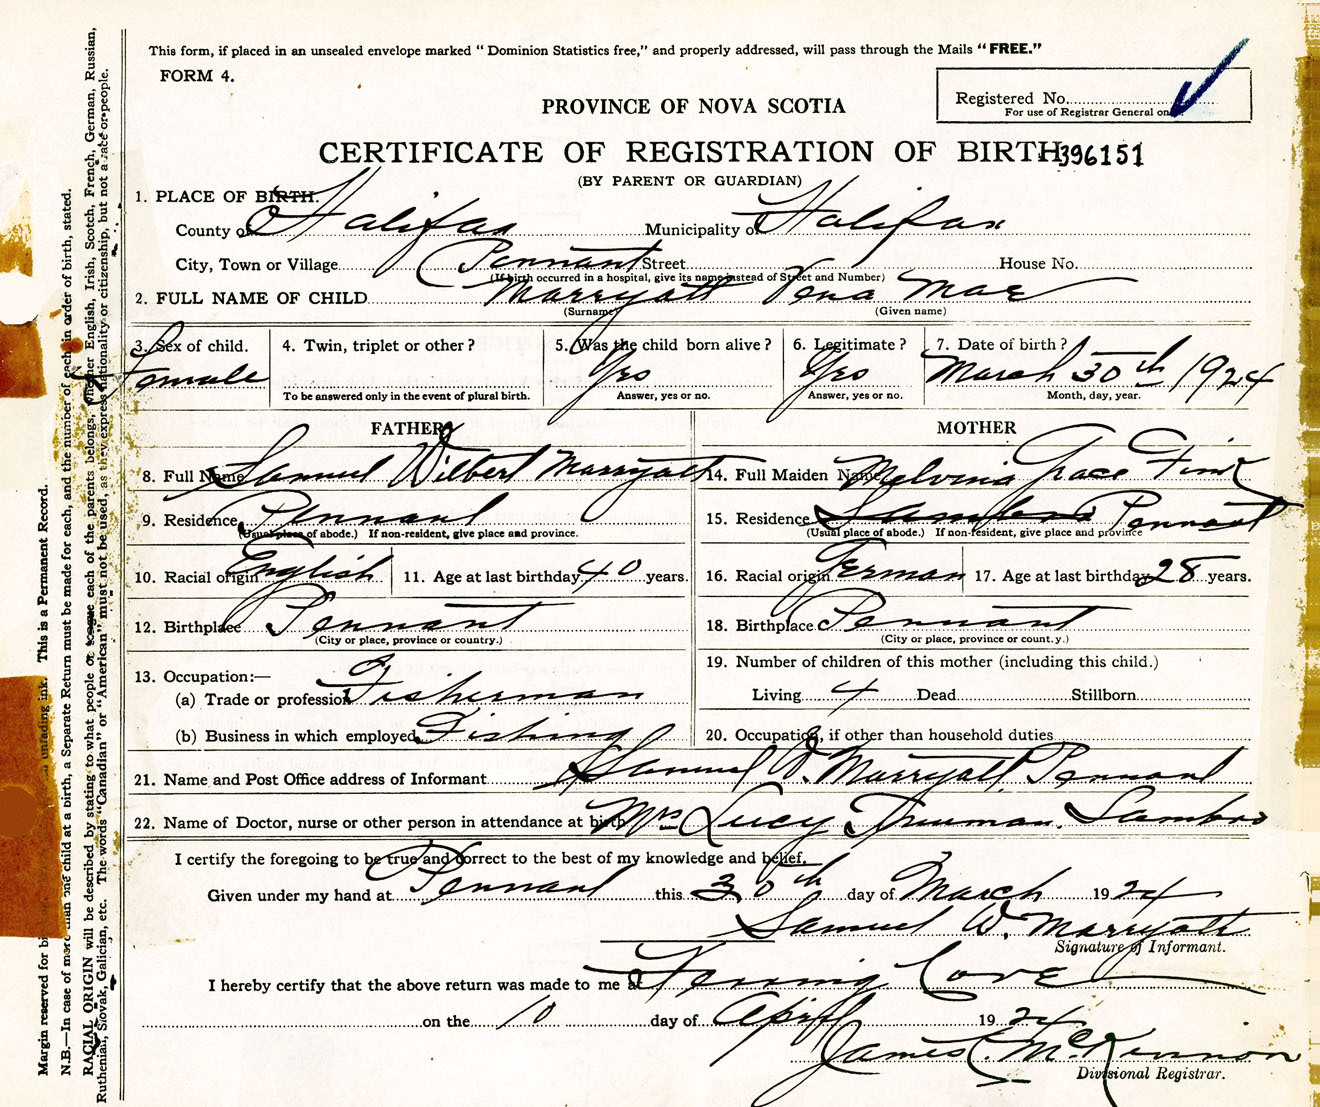 This form, if placed in an unsealed envelope marked "Dominion Statistics free," and properly addressed, will pass through the Mails "FREE."
FORM 4.
Registered No.
For use of Registrar General on
PROVINCE OF NOVA SCOTIA
CERTIFICATE OF REGISTRATION OF BIRTH 396151
(BY PARENT OR GUARDIAN)
1. PLACE OF BIRTH.
County of Halifax Municipality of Halifax
City, Town or Village Pennant Street House No.
(If birth occurred in a hospital, give its name instead of Street and Number)
2. FULL NAME OF CHILD Marryatt Vena Mae
(Surname) (Given name)
3. Sex of child. 4. Twin, triplet or other? 5. Was the child born alive? 6. Legitimate? 7. Date of birth?
Female Yes Yes March 30th 1924
To be answered only in the event of plural birth. Answer, yes or no. Answer, yes or no. Month, day, year.
FATHER MOTHER
8. Full Name Samuel Wilbert Marryatt 14. Full Maiden Name Melvina Grace Finck
9. Residence Pennant 15. Residence Sambro Pennant
(Usual place of abode.) If non-resident, give place and province. (Usual place of abode.) If non-resident, give place and province
10. Racial origin English 11. Age at last birthday 40 years. 16. Racial origin German 17. Age at last birthday 28 years.
12. Birthplace Pennant 18. Birthplace Pennant
(City or place, province or country.) (City or place, province or count.y.)
13. Occupation:— 19. Number of children of this mother (including this child.)
(a) Trade or profession Fisherman Living 4 Dead Stillborn
(b) Business in which employed Fishing 20. Occupation, if other than household duties
21. Name and Post Office address of Informant Samuel W. Marryatt Pennant
22. Name of Doctor, nurse or other person in attendance at birth Mrs Lucy Truman. Sambro
I certify the foregoing to be true and correct to the best of my knowledge and belief.
Given under my hand at Pennant this 30th day of March 1924
Samuel W. Marryatt
Signature of Informant.
I hereby certify that the above return was made to me at Terning Cove
on the 10 day of April 1924
James C. McKinnon
Divisional Registrar.
Margin reserved for bi unfading ink. This is a Permanent Record.
N.B.—In case of more than one child at a birth, a Separate Return must be made for each, and the number of each, in order of birth, stated.
RACIAL ORIGIN will be described by stating to what people or each of the parents belongs, whether English, Irish, Scotch, French, German, Russian,
Ruthenian, Slovak, Galician, etc. The words "Canadian" or "American" must not be used, as they express nationality or citizenship, but not a race or people.